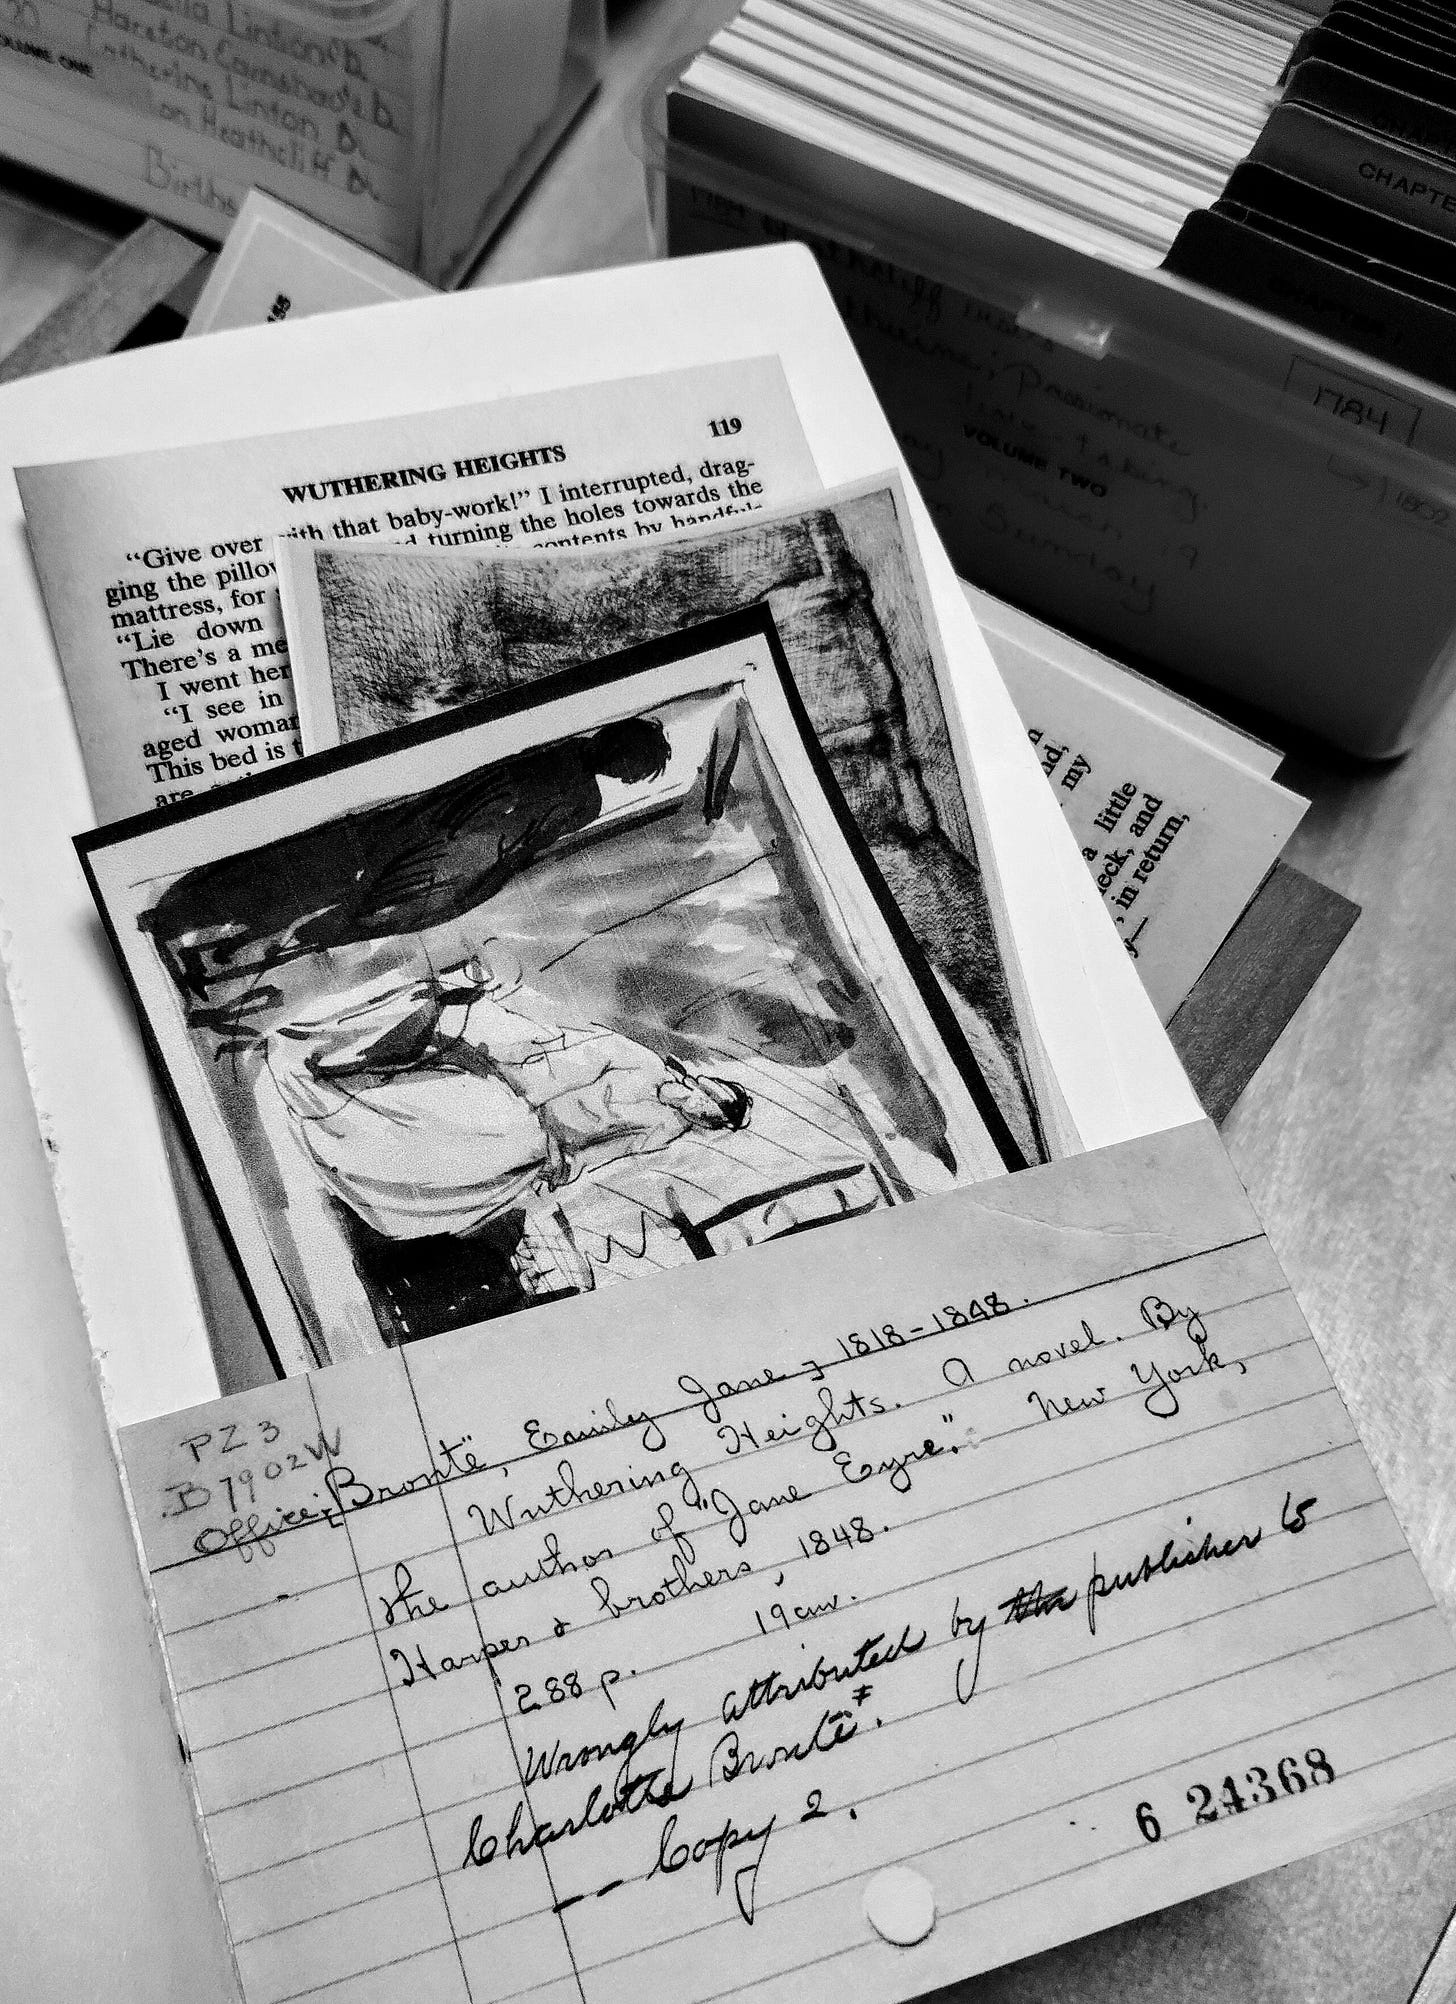 Linton b.
Hareton Earnshaw b.
Catherine Linton D.
Heathcliff D.
Births
VOLUME ONE
CHAPTE
CHAPTER I
1784
1784
Passionate
VOLUME TWO
Sunday
1802
119
WUTHERING HEIGHTS
“Give over with that baby-work!” I interrupted, drag-
ging the pillow turning the holes towards the
mattress, for contents by handfuls
“Lie down
There's a me
I went her
“I see in
aged woman
This bed is t
are
my
a little
eck, and
, in return,
y—
PZ3
.B7902W
Office: Brontë, Emily Jane, 1818-1848.
Wuthering Heights. A novel. By
the author of "Jane Eyre." New York,
Harper & brothers, 1848.
288 p. 19cm.
Wrongly attributed by the publisher to
Charlotte Brontë.
-- Copy 2.
6 24368